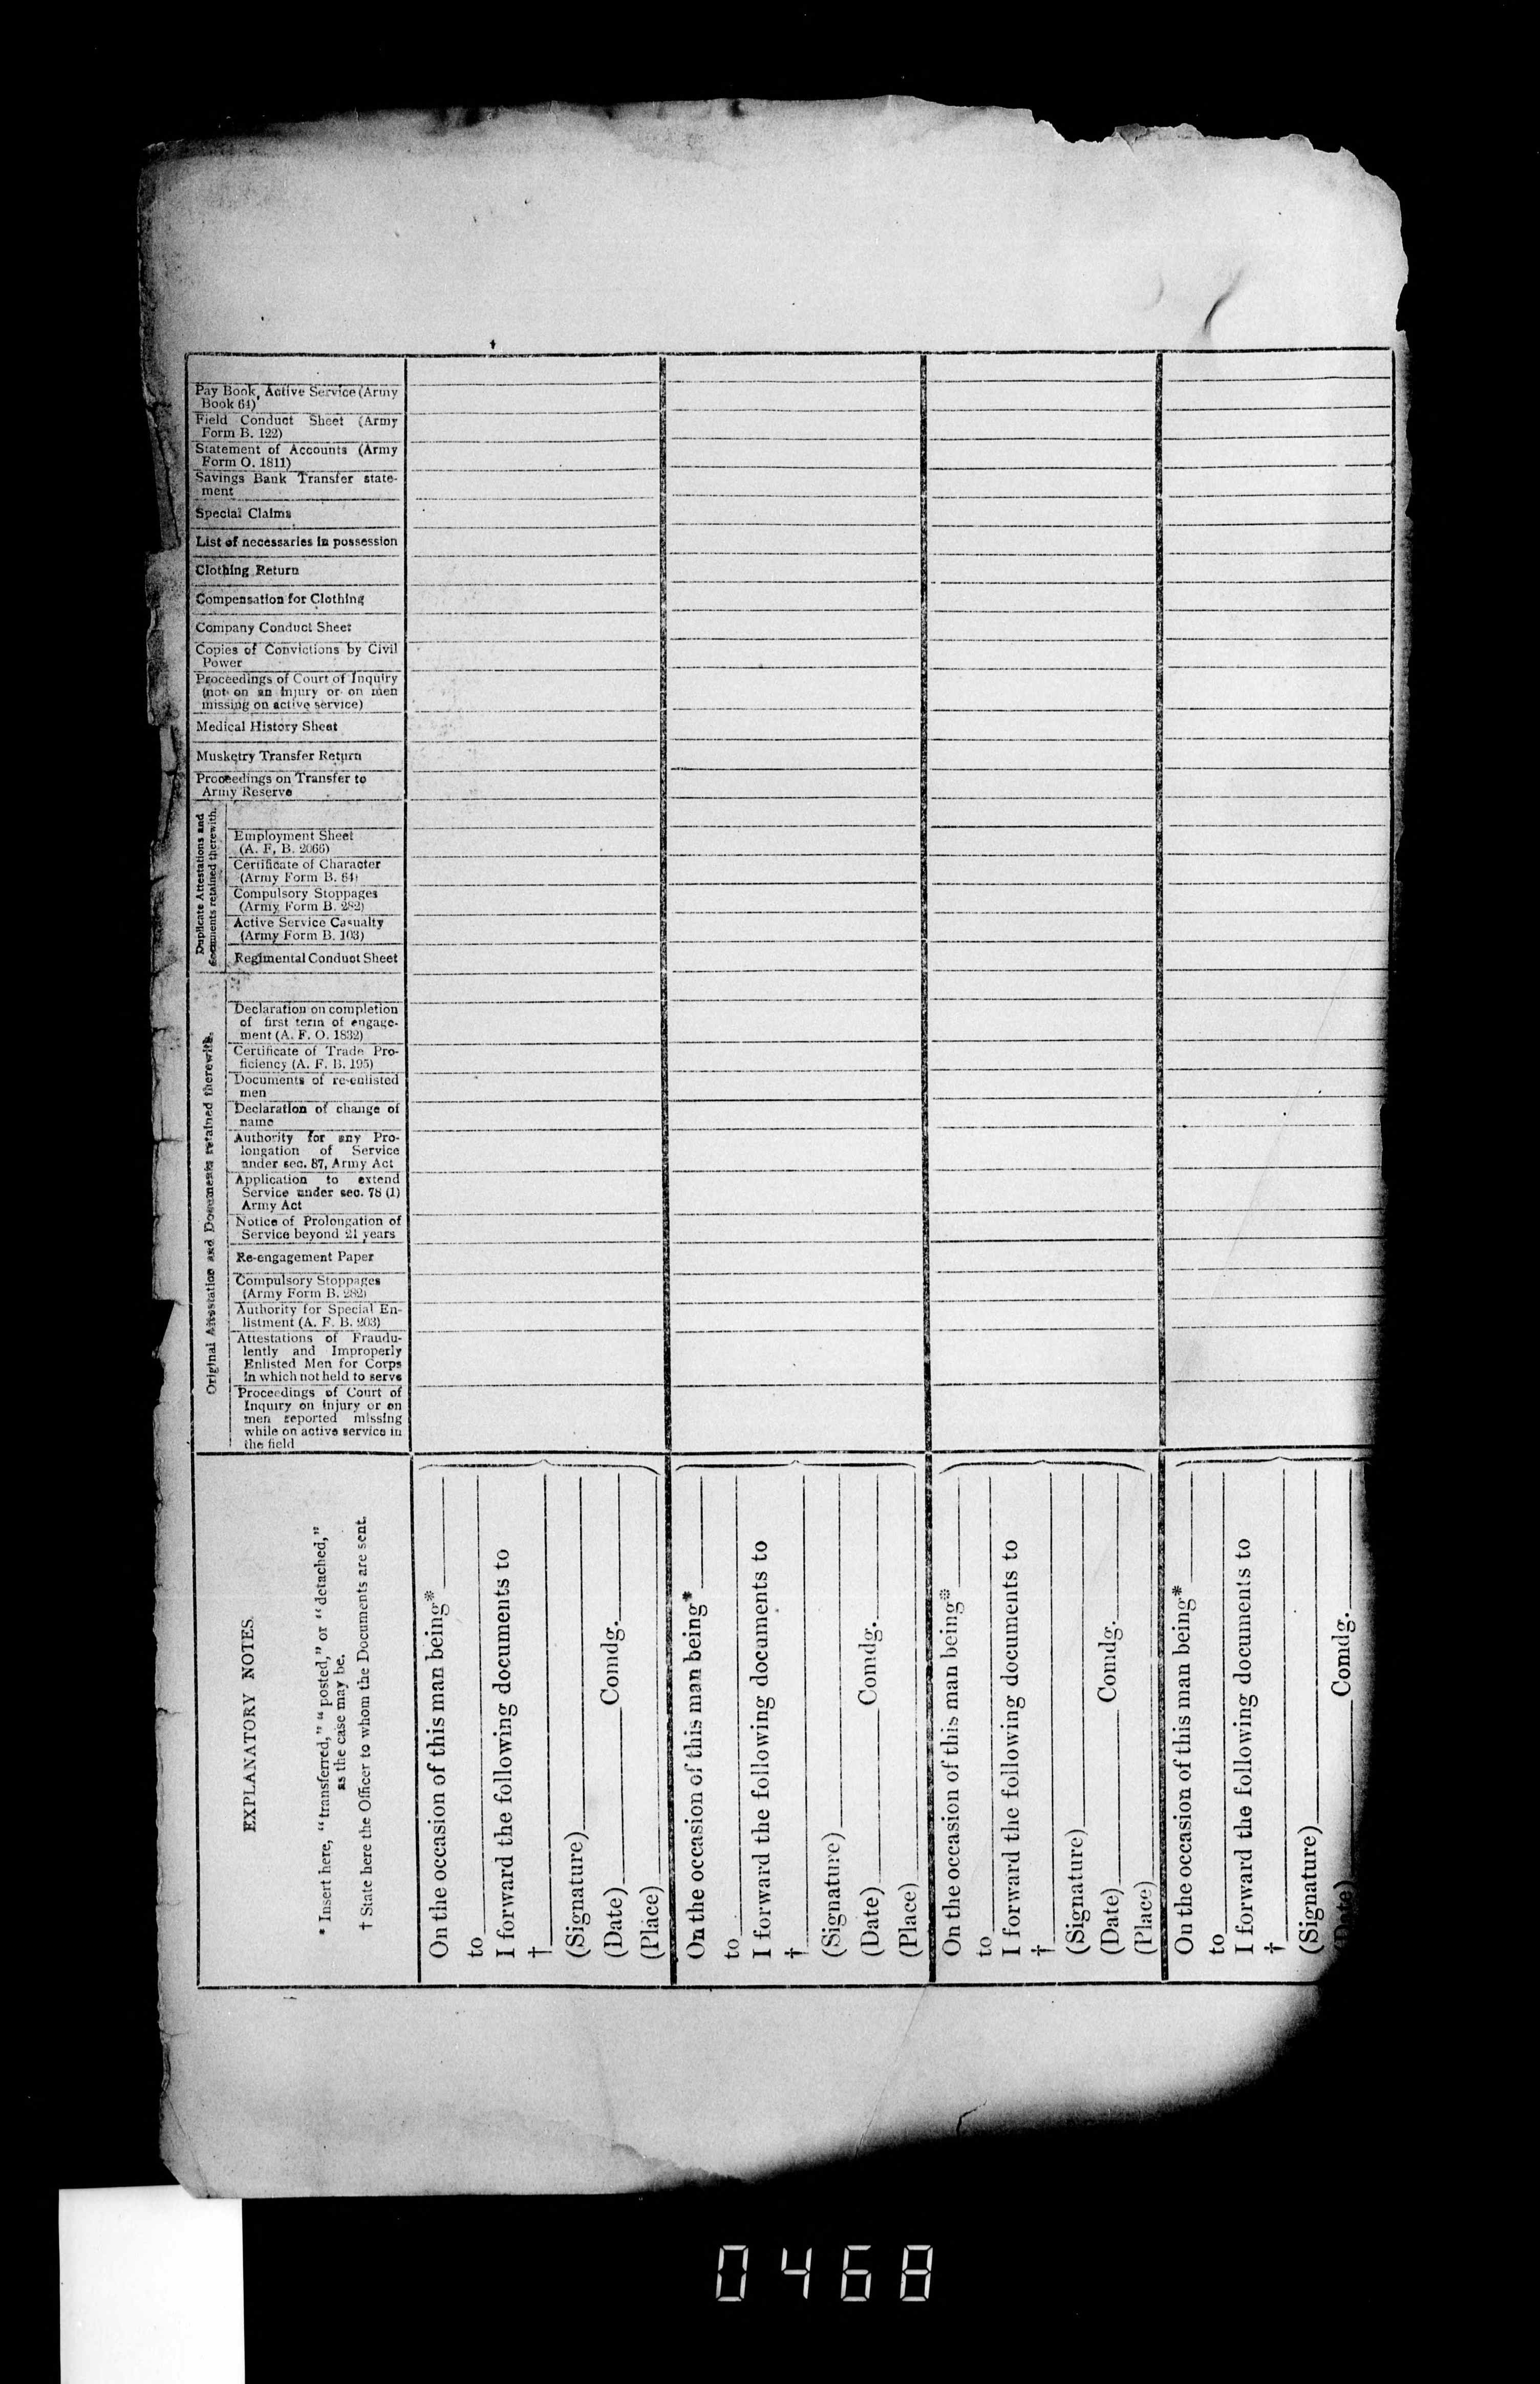 Pay Book, Active Service (Army
Book 64)
Field Conduct Sheet (Army
Form B. 122)
Statement of Accounts (Army
Form O. 1811)
Savings Bank Transfer state-
ment
Special Claims
List of necessaries in possession
Clothing Return
Compensation for Clothing
Company Conduct Sheet
Copies of Convictions by Civil
Power
Proceedings of Court of Inquiry
(not on an injury or on men
missing on active service)
Medical History Sheet
Musketry Transfer Return
Proceedings on Transfer to
Army Reserve
Duplicate Attestations and
documents retained therewith.
Employment Sheet
(A. F. B. 2066)
Certificate of Character
(Army Form B. 64)
Compulsory Stoppages
(Army Form B. 282)
Active Service Casualty
(Army Form B. 103)
Regimental Conduct Sheet
Original Attestation and Documents retained therewith.
Declaration on completion
of first term of engage-
ment (A. F. O. 1832)
Certificate of Trade Pro-
ficiency (A. F. B. 195)
Documents of re-enlisted
men
Declaration of change of
name
Authority for any Pro-
longation of Service
under sec. 87, Army Act
Application to extend
Service under sec. 78 (1)
Army Act
Notice of Prolongation of
Service beyond 21 years
Re-engagement Paper
Compulsory Stoppages
(Army Form B. 282)
Authority for Special En-
listment (A. F. B. 203)
Attestations of Fraudu-
lently and Improperly
Enlisted Men for Corps
in which not held to serve
Proceedings of Court of
Inquiry on injury or on
men reported missing
while on active service in
the field
EXPLANATORY NOTES.
* Insert here, "transferred," "posted," or "detached,"
as the case may be.
† State here the Officer to whom the Documents are sent.
On the occasion of this man being*
to
I forward the following documents to
†
(Signature)
(Date) Comdg.
(Place)
On the occasion of this man being*
to
I forward the following documents to
†
(Signature)
(Date) Comdg.
(Place)
On the occasion of this man being*
to
I forward the following documents to
†
(Signature)
(Date) Comdg.
(Place)
On the occasion of this man being*
to
I forward the following documents to
†
(Signature)
(Date) Comdg.
0468